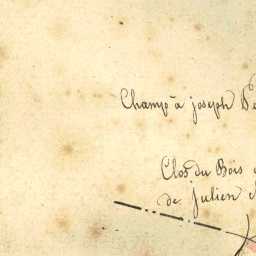 Champ à joseph
Clos du Bois
de Julien